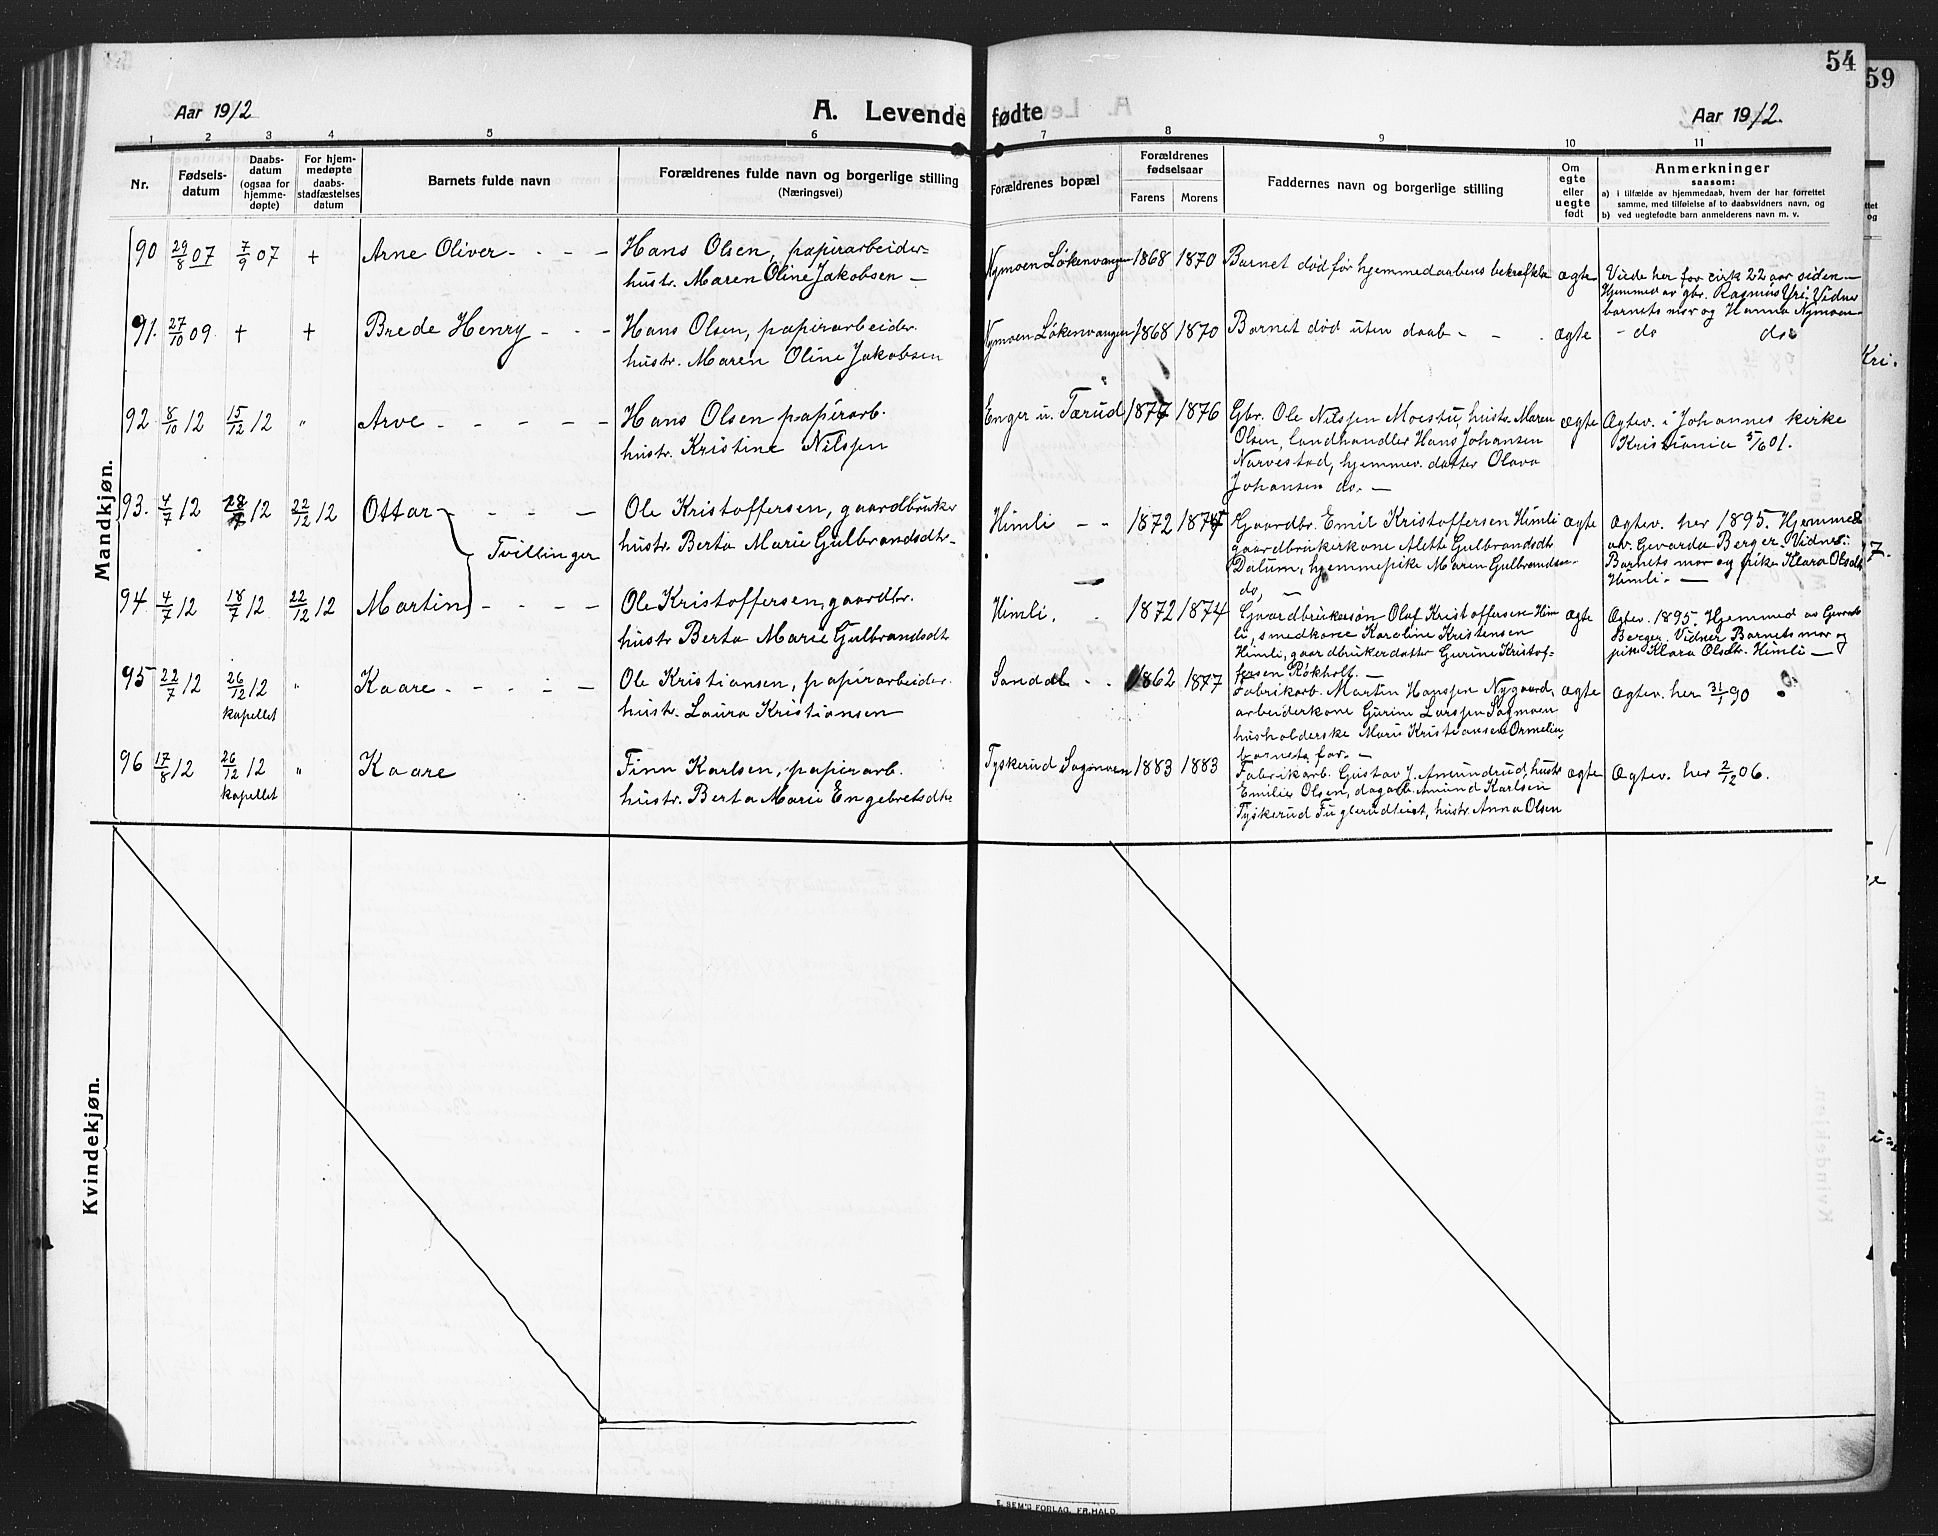 54
59
Aar 1912
A. Levende fødte
Aar 1912.
1 2 3 4 5 6 7 8 9 10 11
Nr.
Fødsels-
datum
Daabs-
datum
(ogsaa for
hjemme-
døpte)
For hjem-
medøpte
daabs-
stadfæstelses
datum
Barnets fulde navn
Forældrenes fulde navn og borgerlige stilling
(Næringsvei)
Forældrenes bopæl
Forældrenes
fødselsaar
Farens Morens
Faddernes navn og borgerlige stilling
Om
egte
eller
uegte
født
Anmerkninger
saasom:
a) i tilfælde av hjemmedaab, hvem der har forrettet
samme, med tilføielse af to daabsvidners navn, og
b) ved uegtefødte barn anmelderens navn m. v.
Mandkjøn.
90 29/8 07 7/9 07 + Arne Oliver - - - -
Hans Olsen, papirarbeider-
hustr. Maren Oline Jakobsen -
Nymoen Løkenvangen 1868 1870
Barnet død før hjemmedaabens bekræftelse
ægte
Viede her for cirk 22 aar siden -
Hjemmed av gbr. Rasmus Yri. Vidner
barnets mor og Hanna Nymoen -
91. 27/10 09 + + Brede Henry - - -
Hans Olsen, papirarbeider.
hustr. Maren Oline Jakobsen
Nymoen Løkenvangen 1868 1870
Barnet død uten daab - - .
ægte
- do do
92 8/10 12 15/12 12 " Arve - - - - -
Hans Olsen papirarb.
hustr. Kristine Nilssen
Enger u. Tærud 1877 1876
Gbr. Ole Nilssen Moestu, hustr. Maren
Olsen, landhandler Hans Johansen
Narvestad, hjemmev. datter Olava
Johansen do. -
ægte
Ægtev. i Johannes kirke
Kristiania 5/6 01.
93. 4/7 12 18/7 12 22/12 12 Ottar - - - -
Tvillinger
Ole Kristoffersen, gaardbruker
hustr. Berta Marie Gulbrandsdtr -
Himli - - 1872 1874
Gaardbr. Emil Kristoffersen Himli
gaardbrukerkone Alette Gulbrandsdtr
Dalum, hjemmepike Maren Gulbrandsen -
do, -
ægte
Ægtev. her 1895. Hjemmed
av. Gevarda Berger. Vidner:
Barnets mor og pike Klara Olsdtr
Himli. -
94. 4/7 12 18/7 12 22/12 12 Martin - - - -
Ole Kristoffersen, gaardbr.
hustr Berta Marie Gulbrandsdtr
Himli. . 1872 1874
Gaardbrukersøn Olaf Kristoffersen Him
li, smedkone Karoline Kristensen
Himli, gaardbrukerdatter Gurine Kristof-
fersen Røkholt. -
ægte
Ægtev. 1895. Hjemmed av Gevarda
Berger. Vidner Barnets mor og
pike Klara Olsdtr. Himli -
95 22/7 12 26/12 12 " Kaare - - - -
kapellet
Ole Kristiansen, papirarbeider.
hustr. Laura Kristiansen
Sandal - - 1862 1877
Fabrikarb. Martin Hanssen Nygaard,
arbeiderkone Gurine Larssen Sagmoen
husholderske Marie Kristiansen Ormelien,
barnets far. -
ægte
Ægtev. her 31/1 90
96 17/8 12 26/12 12 " Kaare
kapellet
Finn Karlsen, papirarb.
hustr. Berta Marie Engebretsdtr
Tyskerud Sagmoen 1883 1883
Fabrikarb. Gustav J. Amundrud, hustr
Emilie Olsen, dagarb. Amund Karlsen
Tyskerud Fuglerudleiet, hustr. Anna Olsen
ægte
Ægtev. her 2/12 06.
Kvindekjøn.
E. SEM'S FORLAG, FR.HALD.
Kri.